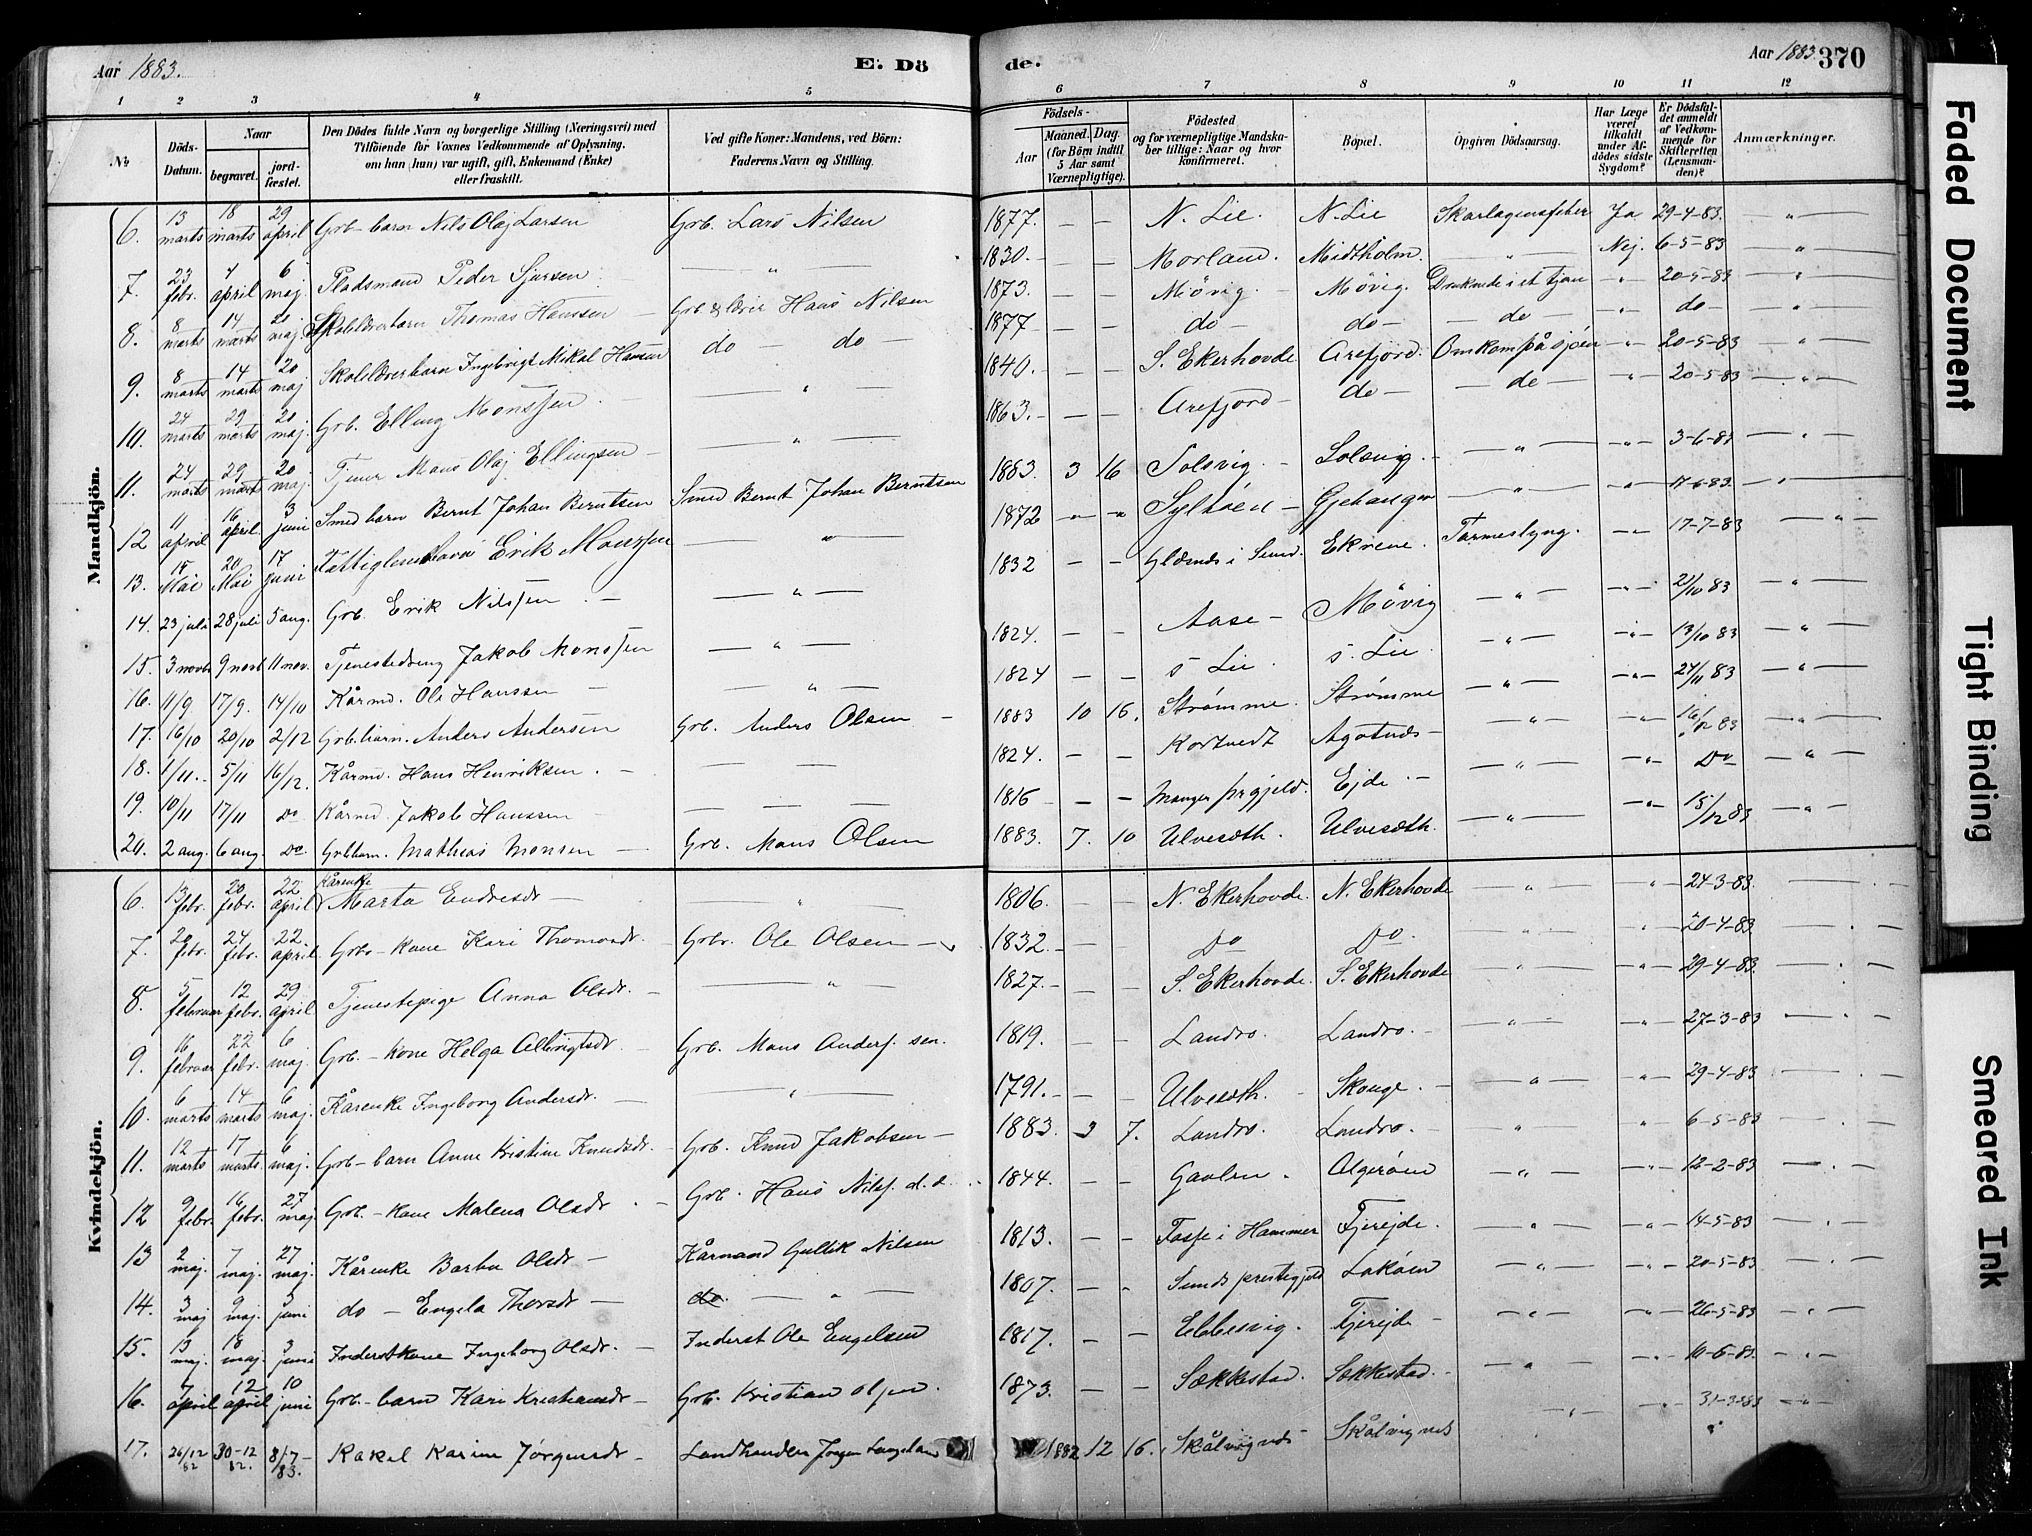 Aar 1883. E. Dö de. Aar 1883 370
1 2 3 4 5 6 7 8 9 10 11 12
No
Döds-Datum.
Naar
begravet.
jord-fæstet.
Den Dödes fulde Navn og borgerlige Stilling (Næringsvei) med
Tilföiende för Voxnes Vedkommende af Oplysning,
om han (hun) var ugift, gift, Enkemand (Enke)
eller fraskilt.
Ved gifte Koner: Mandens, ved Börn:
Faderens Navn og Stilling.
Födsels-
Aar
Maaned. Dag.
(for Börn indtil
5 Aar samt
Værnepligtige).
Födested
og for værnepligtige Mandska-
ber tillige: Naar og hvor
konfirmeret.
Bopæl.
Opgiven Dödsaarsag.
Har Læge
været
tilkaldt
under Af-
dödes sidste
Sygdom?
Er Dödsfal-
det anmeldt
af Vedkom-
mende for
Skifteretten
(Lensman-
den)?
Anmærkninger.
Mandkjön.
6. 13 marts 18 marts 29 april Grb-barn Nils Olaj Larsen Grb. Lars Nilsen 1877. — — N. Lie. N. Lie Skarlagensfeber Ja 29-4-83. — " —
7. 23 febr. 4 april 6 maj Pladsmand Peder Sjursen — " — 1830. — — Morland. Midtholm. " Nej. 6-5-83 — " —
8. 8 marts 14 marts 20 maj. Skolelærerbarn Thomas Hanssen — Grb & lærer Hans Nilsen 1873. — — Møvig. Møvig. Druknede i et tjern — " — 20-5-83 "
9. 8 marts 14 marts 20 maj Skolelærerbarn Ingebrigt Mikal Hansen do — do — 1877 — — do — do — — do — — " — do — " —
10. 24 marts 29 marts 20 maj. Grb. Elling Monssen. — " — 1840. — — S. Ekerhovde Arefjord. Omkom på sjøen — " — 20-5-83 "
11. 24 marts 29 marts 20 maj. Tjener Mons Olaj Ellingsen — — " — 1863. — — Arefjord — do — — do — " 20-5-83 — " —
12 11 april 16 april 3 juni Smed barn Bernt Johan Berntsen Smed Bernt Johan Berntsen 1883 3 16 Solsvig — Solsvig — — " — — " — 3-6-83 — " —
13. 18 Mai 20 Mai 17 juni Fattiglem Erik Monssen — " — 1872 " " — " — " 17-6-83. — " —
14. 23 juli 28 juli 5 aug. Grb. Erik Nilssen — — " — 1832 — — i Sund. Ekrene. Tarmeslyng. — " — 17-7-83 — " —
15. 3 novb 9 novb 11 nov. Tjenestedreng Jakob Monssen — " — 1824. — — Aase — Møvig — " — — " — 21/10 83 — " —
16. 11/9 17/9. 14/10 Kårmd. Ole Hanssen — — " — 1824 — — S. Lie. S. Lie — " — — " — 13/10 83 — " —
17. 16/10 20/10 2/12 Grb.barn. Anders Andersen Grb. Anders Olsen — 1883 10 16. Strømme. Strømme — " — — " — 24/11 83 — " —
18. 1/11. 5/11 16/12. Kårmd. Hans Henriksen. — — — 1824. — — Kortvedt Agotnes — — " — — " — 16/12 83 — " —
19. 10/11 17/11 Do Kårmd. Jakob Hanssen — — — 1816 — — Manger prgjeld. Ejde — — " — — " — Do — " —
20. 2 aug. 6 aug. Do. Grbbarn. Mathias Monsen — Grb. Mons Olsen 1883. 7. 10 Ulvesæth. Ulvesæth. — " — — " — 15/12 83 — " —
Kvindekjön.
6. 13 febr. 20 febr. 22 april Kårenke Marta Endresdr — " — 1806. — — N. Ekerhovde. N. Ekerhovde — " — " 24-3-83.
7. 20 febr. 24 febr. 22 april Grb-kone Kari Thomasdr. Grbr. Ole Olsen — 1832. — Do Do. " " 20-4-83
8. 5 februar 12 febr. 29 april Tjenestepige Anna Olsdr. — — " — 1827. — — S. Ekerhovde. S. Ekerhovde " " 29-4-83.
9. 16 februar 22 febr. 6 maj. Grb-kone Helga Albrigtsdr. Grb. Mons Anders. sen. 1819. — — Landro. Landro. — — " — — " — 27-3-83
10. 6 marts 14 marts 6 maj. Kårenke Ingeborg Andersdr. — — " — 1791. — — Ulvesæth. Skouge. — — " — — " — 29-4-83
11. 12 marts 17 marts. 6 maj. Grb-barn Anne Kristine Knudsdr. Grb. Knud Jakobsen — 1883. 3 7. Landro. Landro. " " 6-5-83
12 9 febr. 16 febr. 27 maj. Grb-kone Malena Olsdr. — Grb. Hans Nils. d.e. 1844. — — Gavlen. Algerøen — " — — " — 12-2-83
13 2 maj. 7 maj. 27 maj. Kårenke Barbu Olsdr — Kårmand Gullik Nilsen 1813. — — Fosse i Hammer Tjerejde. — " — — " — 14-5-83
14. 3 maj 9 maj. 3 juni do — Engela Thorsdr — do. — " — 1807. — " Sunds prestegjeld Lokøen — " — — " — 20-5-83
15. 13 maj. 18 maj. 3 juni Inderstkone Ingeborg Olsdr. — Inderst Ole Engelsen 1817. — — Ebbesvig. Tjerejde — " — — " — 26-5-83
16. 7 april 12 april 10 juni Grb.-barn Kari Kristiansdr — Grb. Kristian Olsen. 1873. — — Sækkestad. Sækkestad. — " — — " — 10-6-83.
17. 26/12 82 30-12 82. 8/7 83. Rakel Karine Jørgensdr Landhandler Jørgen 1882 12 16. Skålvignes Skålvignes " " 31-3-83 "
Faded Document
Tight Binding
Smeared Ink